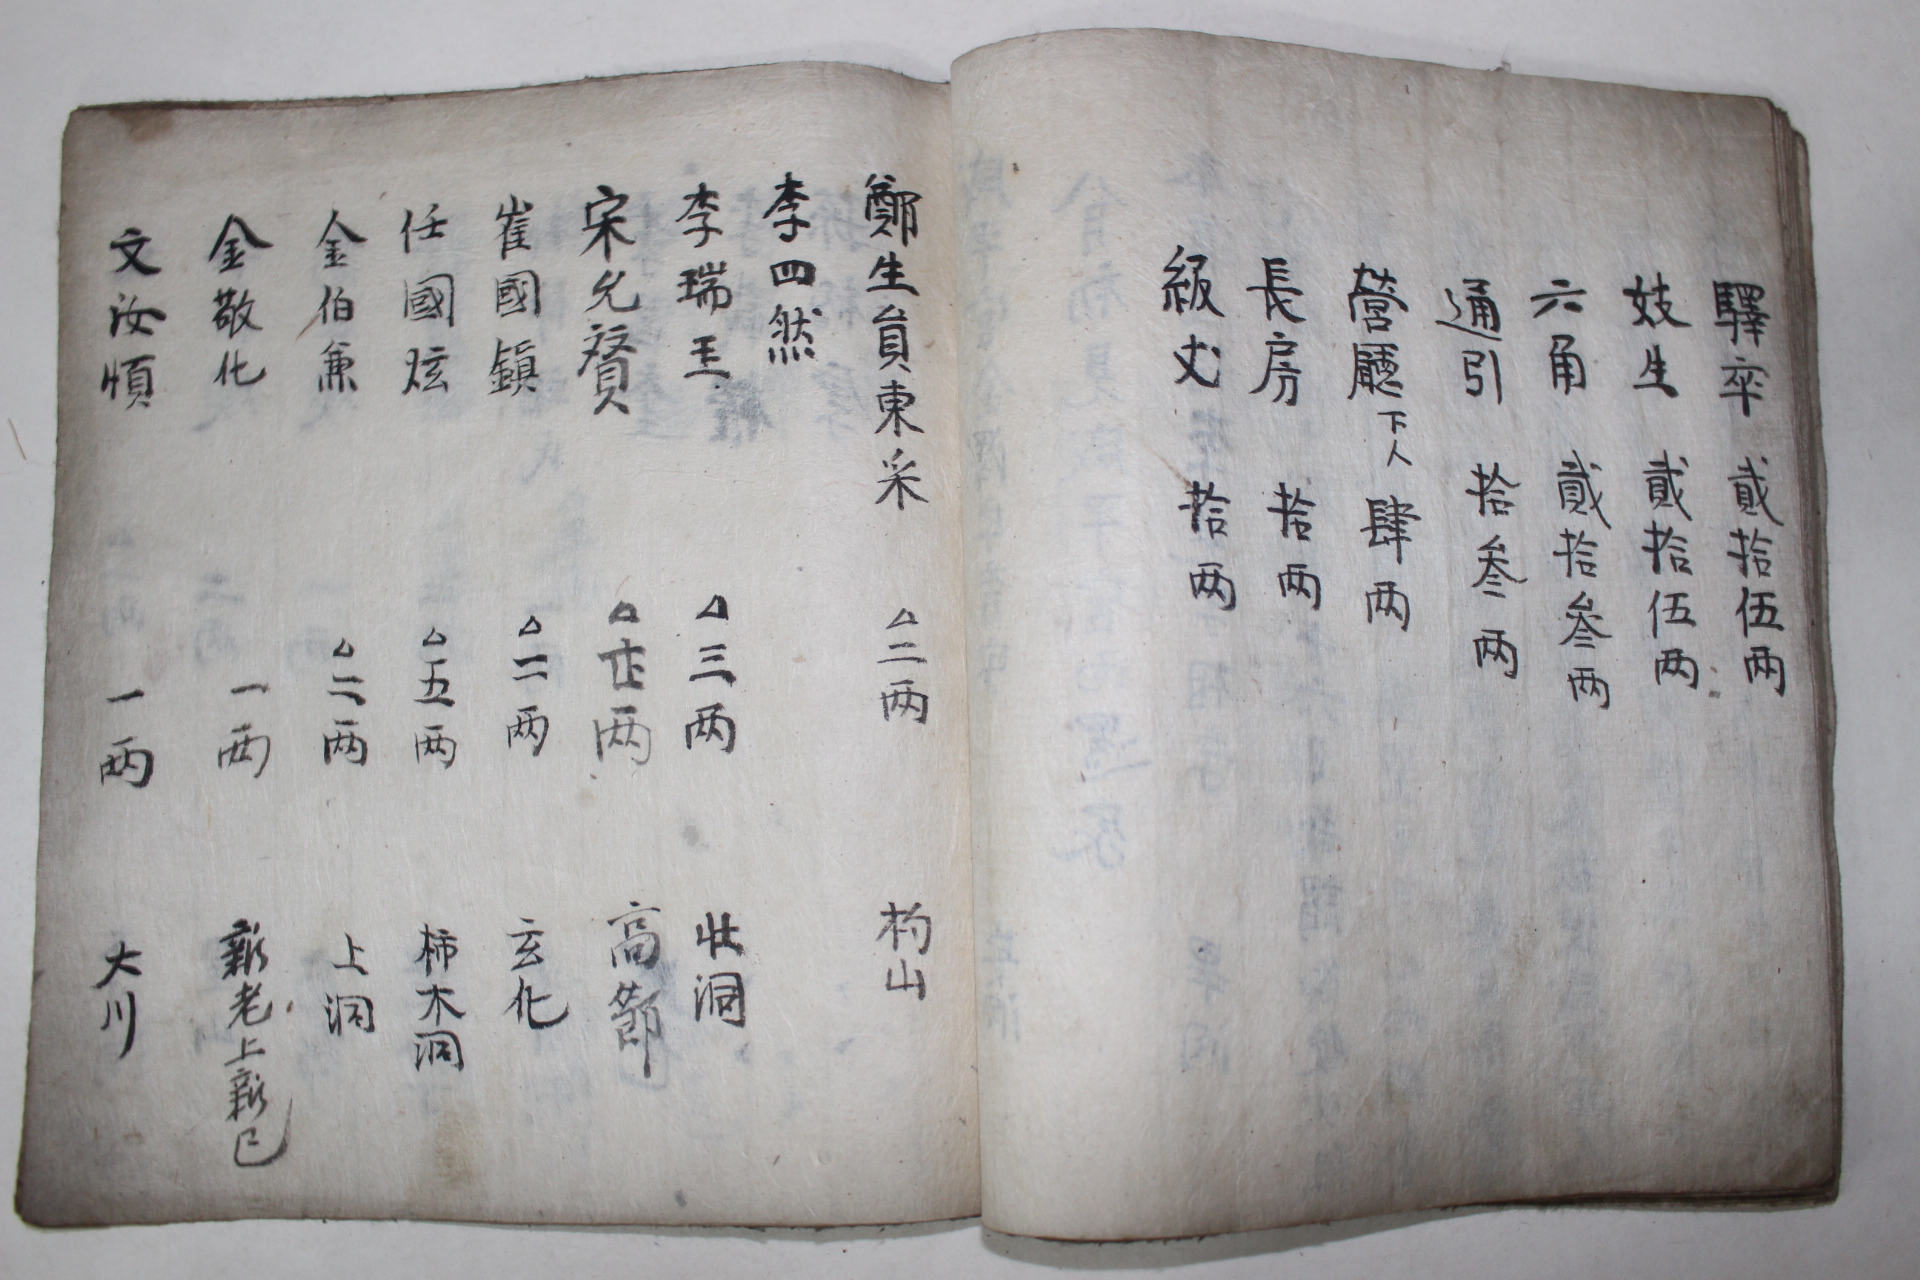 驛卒 貳拾伍兩
妓生 貳拾伍兩
六角 貳拾叁兩
通引 拾叁兩
營廳下人 肆兩
長房 拾兩
級丈 拾兩
鄭生員東采 △二兩 杓山
李四然
李瑞玉 △三兩 壯洞
宋允賛 △ 兩 高節
崔國鎭 △二兩 玄化
任國炫 △五兩 柿木洞
金伯兼 △二兩 上洞
金敬化 一兩 新老上新已
文汝順 一兩 大川